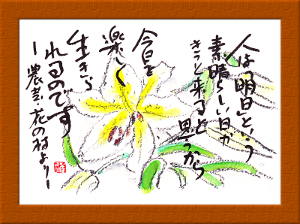 人は明日という
素晴らしい日が
きっと来ると
思うから
今日を
楽しく
生きら
れるのです